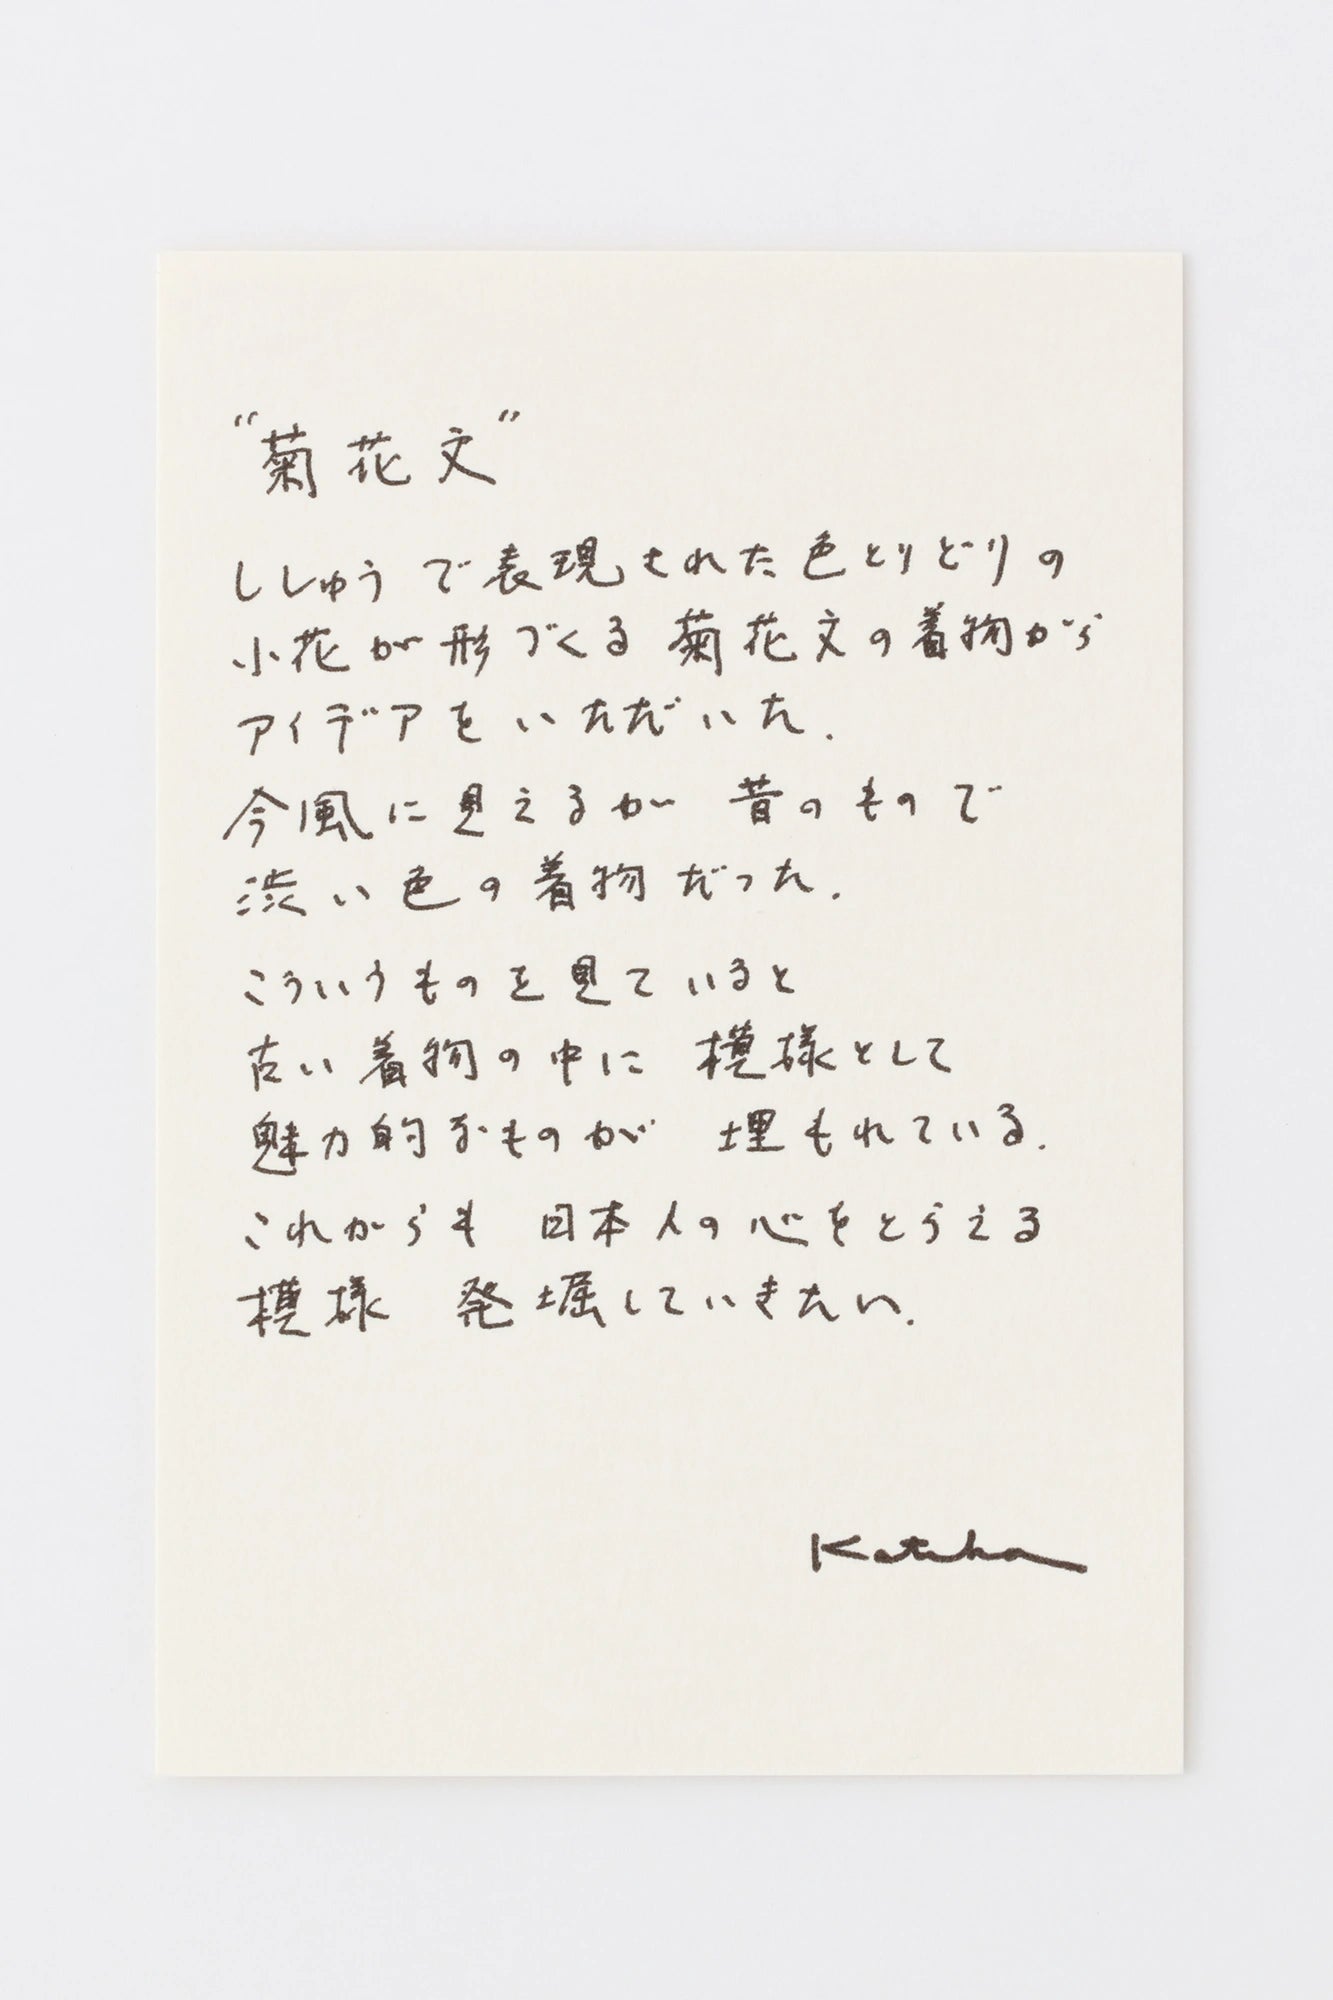 “菊花文”
ししゅうで表現された色とりどりの
小花が形づくる菊花文の着物から
アイデアをいただいた.
今風に見えるが 昔のもので
渋い色の着物だった.
こういうものを見ていると
古い着物の中に 模様として
魅力的なものが 埋もれている.
これからも 日本人の心をとらえる
模様 発堀していきたい.
Katsha